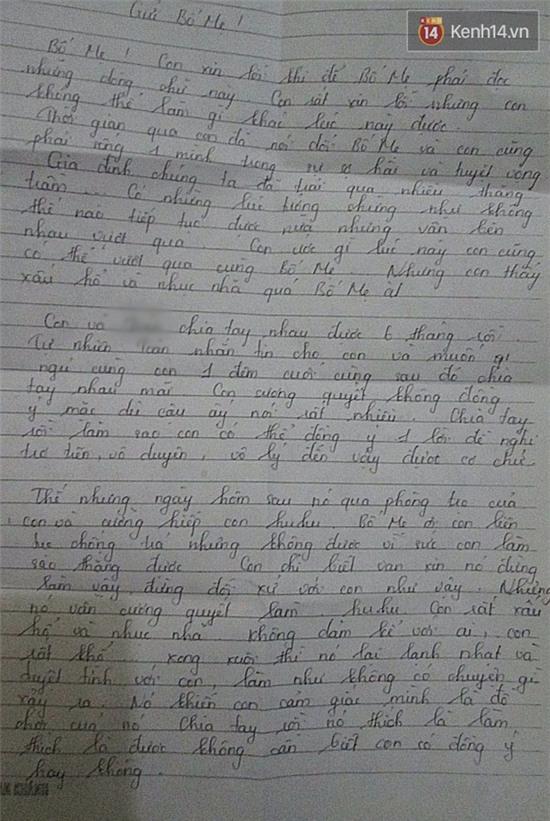 14 Kenh14.vn
Gửi Bố Mẹ!
Bố Mẹ! Con xin lỗi khi để Bố Mẹ phải đọc
những dòng chữ này. Con rất xin lỗi nhưng con
không thể làm gì khác lúc này được.
Thời gian qua con đã nói dối Bố Mẹ và con cũng
phải sống 1 mình trong sự sợ hãi và tuyệt vọng
Gia đình chúng ta đã trải qua nhiều thăng
trầm... Có những lúc tưởng chừng như không
thể nào tiếp tục được nữa nhưng vẫn bên
nhau vượt qua. Con ước gì lúc này con cũng
có thể vượt qua cùng Bố Mẹ... Nhưng con thấy
xấu hổ và nhục nhã quá Bố Mẹ ạ!
Con và chia tay nhau được 6 tháng rồi.
Tự nhiên nhắn tin cho con và muốn
ngủ cùng con 1 đêm cuối cùng sau đó chia
tay nhau mãi. Con cương quyết không đồng
ý mặc dù cậu ấy nói rất nhiều. Chia tay
rồi làm sao con có thể đồng ý 1 lời đề nghị
trơ trẽn, vô duyên, vô lý đến vậy được cơ chứ.
Thế nhưng ngày hôm sau nó qua phòng trọ của
con và cưỡng hiếp con huhu. Bố Mẹ ơi con liên
tục chống trả nhưng không được vì sức con làm
sao thắng được. Con chỉ biết van xin nó đừng
làm vậy, đừng đối xử với con như vậy. Nhưng
nó vẫn cương quyết làm. huhu Con rất xấu
hổ và nhục nhã không dám kể với ai, con
rất khổ.... xong xuôi thì nó lại lạnh nhạt và
tuyệt tình với con, làm như không có chuyện gì
xảy ra. Nó khiến con cảm giác mình là đồ
chơi của nó. Chia tay rồi nó thích là làm
thích là được không cần biết con có đồng ý
hay không.